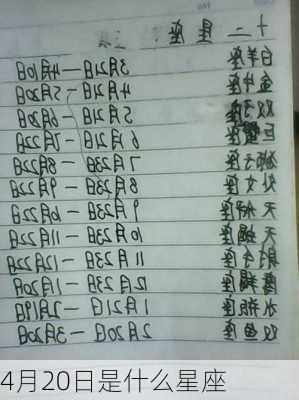 十二星座
白羊座 3月21日—4月10日
金牛座 4月21日—5月20日
双子座 5月21日—6月20日
巨蟹座 6月21日—7月22日
狮子座 7月23日—8月22日
处女座 8月23日—9月22日
天秤座 9月23日—10月22日
天蝎座 10月23日—11月22日
射手座 11月23日—12月22日
魔羯座 12月23日—1月20日
水瓶座 1月21日—2月19日
双鱼座 2月20日—3月20日
4月20日是什么星座